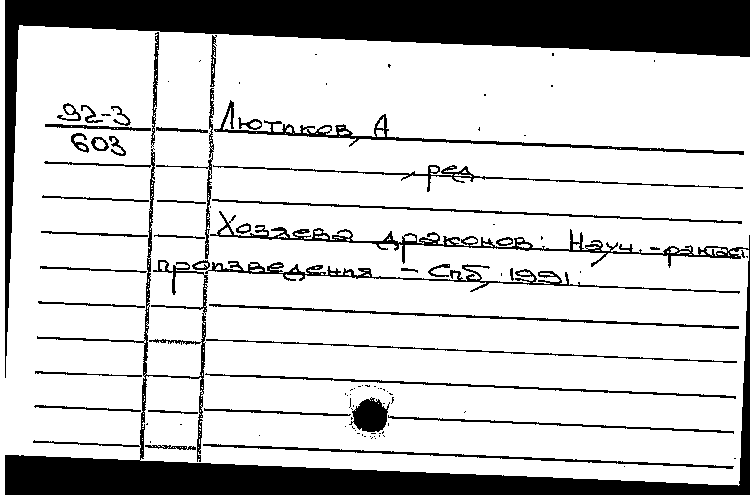 92-3
603
Лютиков, А
, ред
Хозяева драконов: Науч.-фантаст
произведения - Спб, 1991.